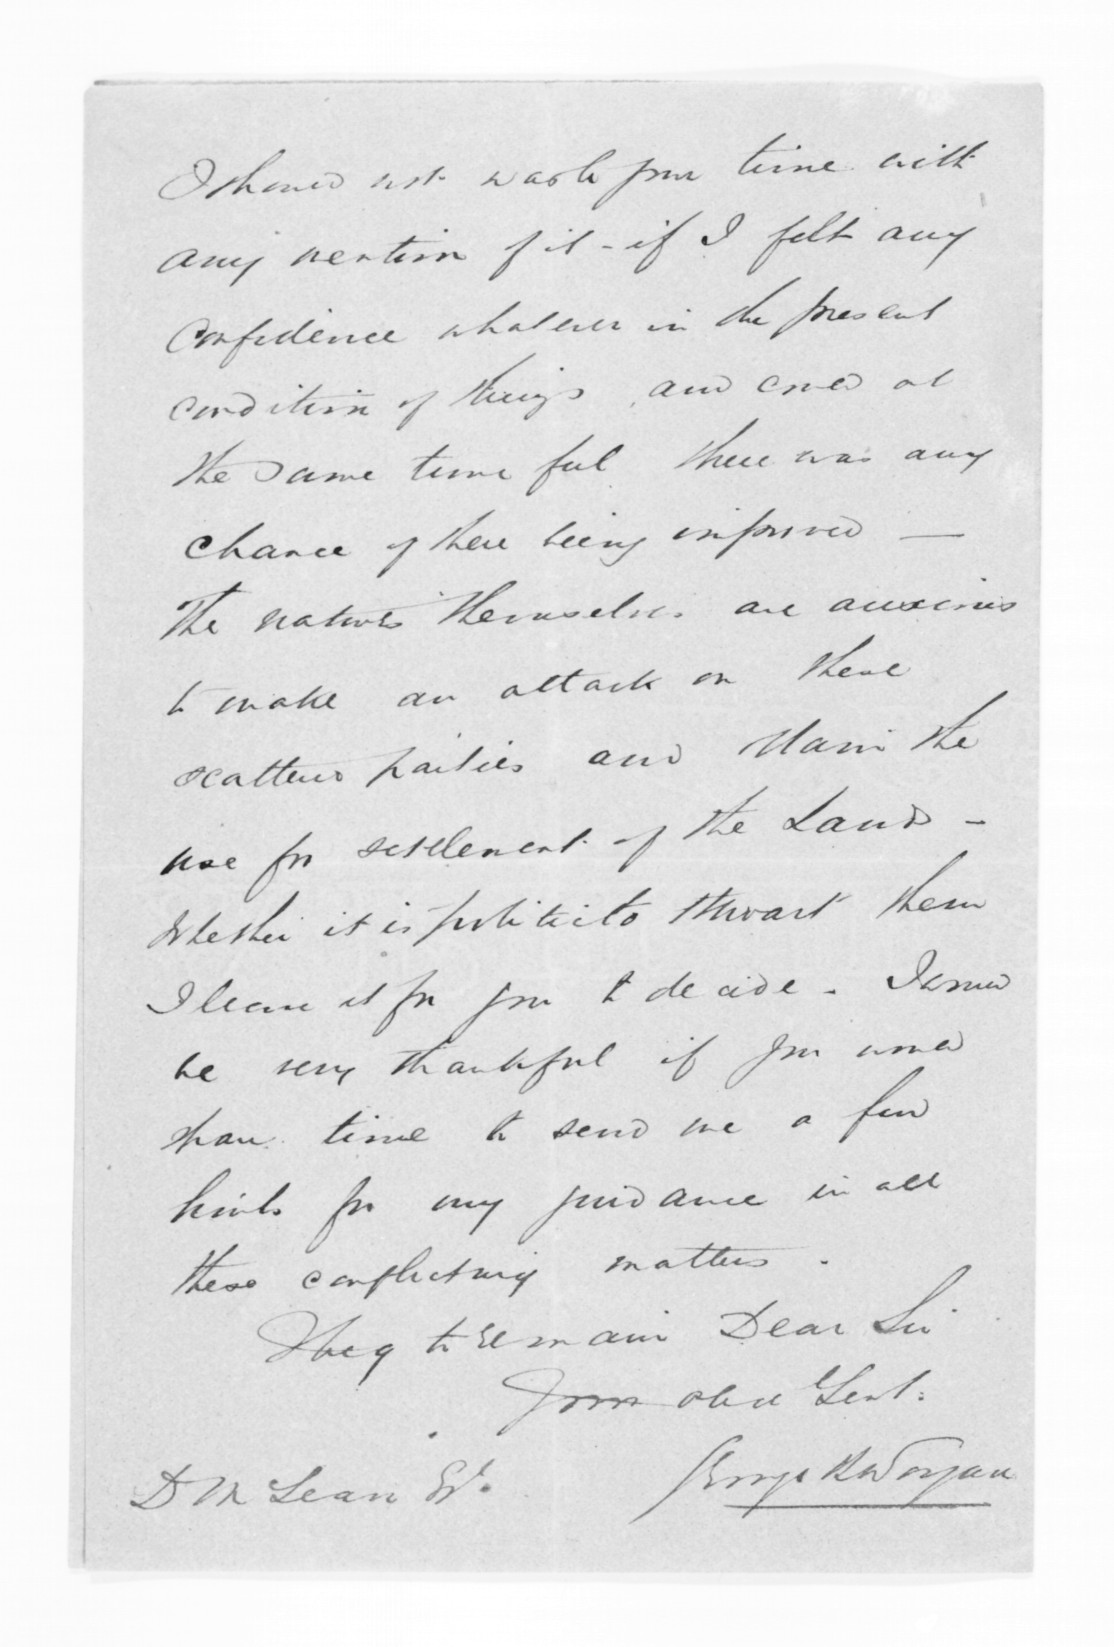 I should not waste your time with
any mention of it - if I felt any
confidence whatever in the present
condition of things, and could at
the same time feel there was any
chance of there being improved —
The natives themselves are anxious
to make an attack on these
scattered parties and claim the
use for settlement of the Lands -
Whether it is politic to thwart them
I leave it for you to decide. I would
be very thankful if you would
spare time to send me a few
hints for my guidance in all
these conflicting matters.
I beg to remain Dear Sir
Your obed Servt.
George Worgan
D McLean Esq.